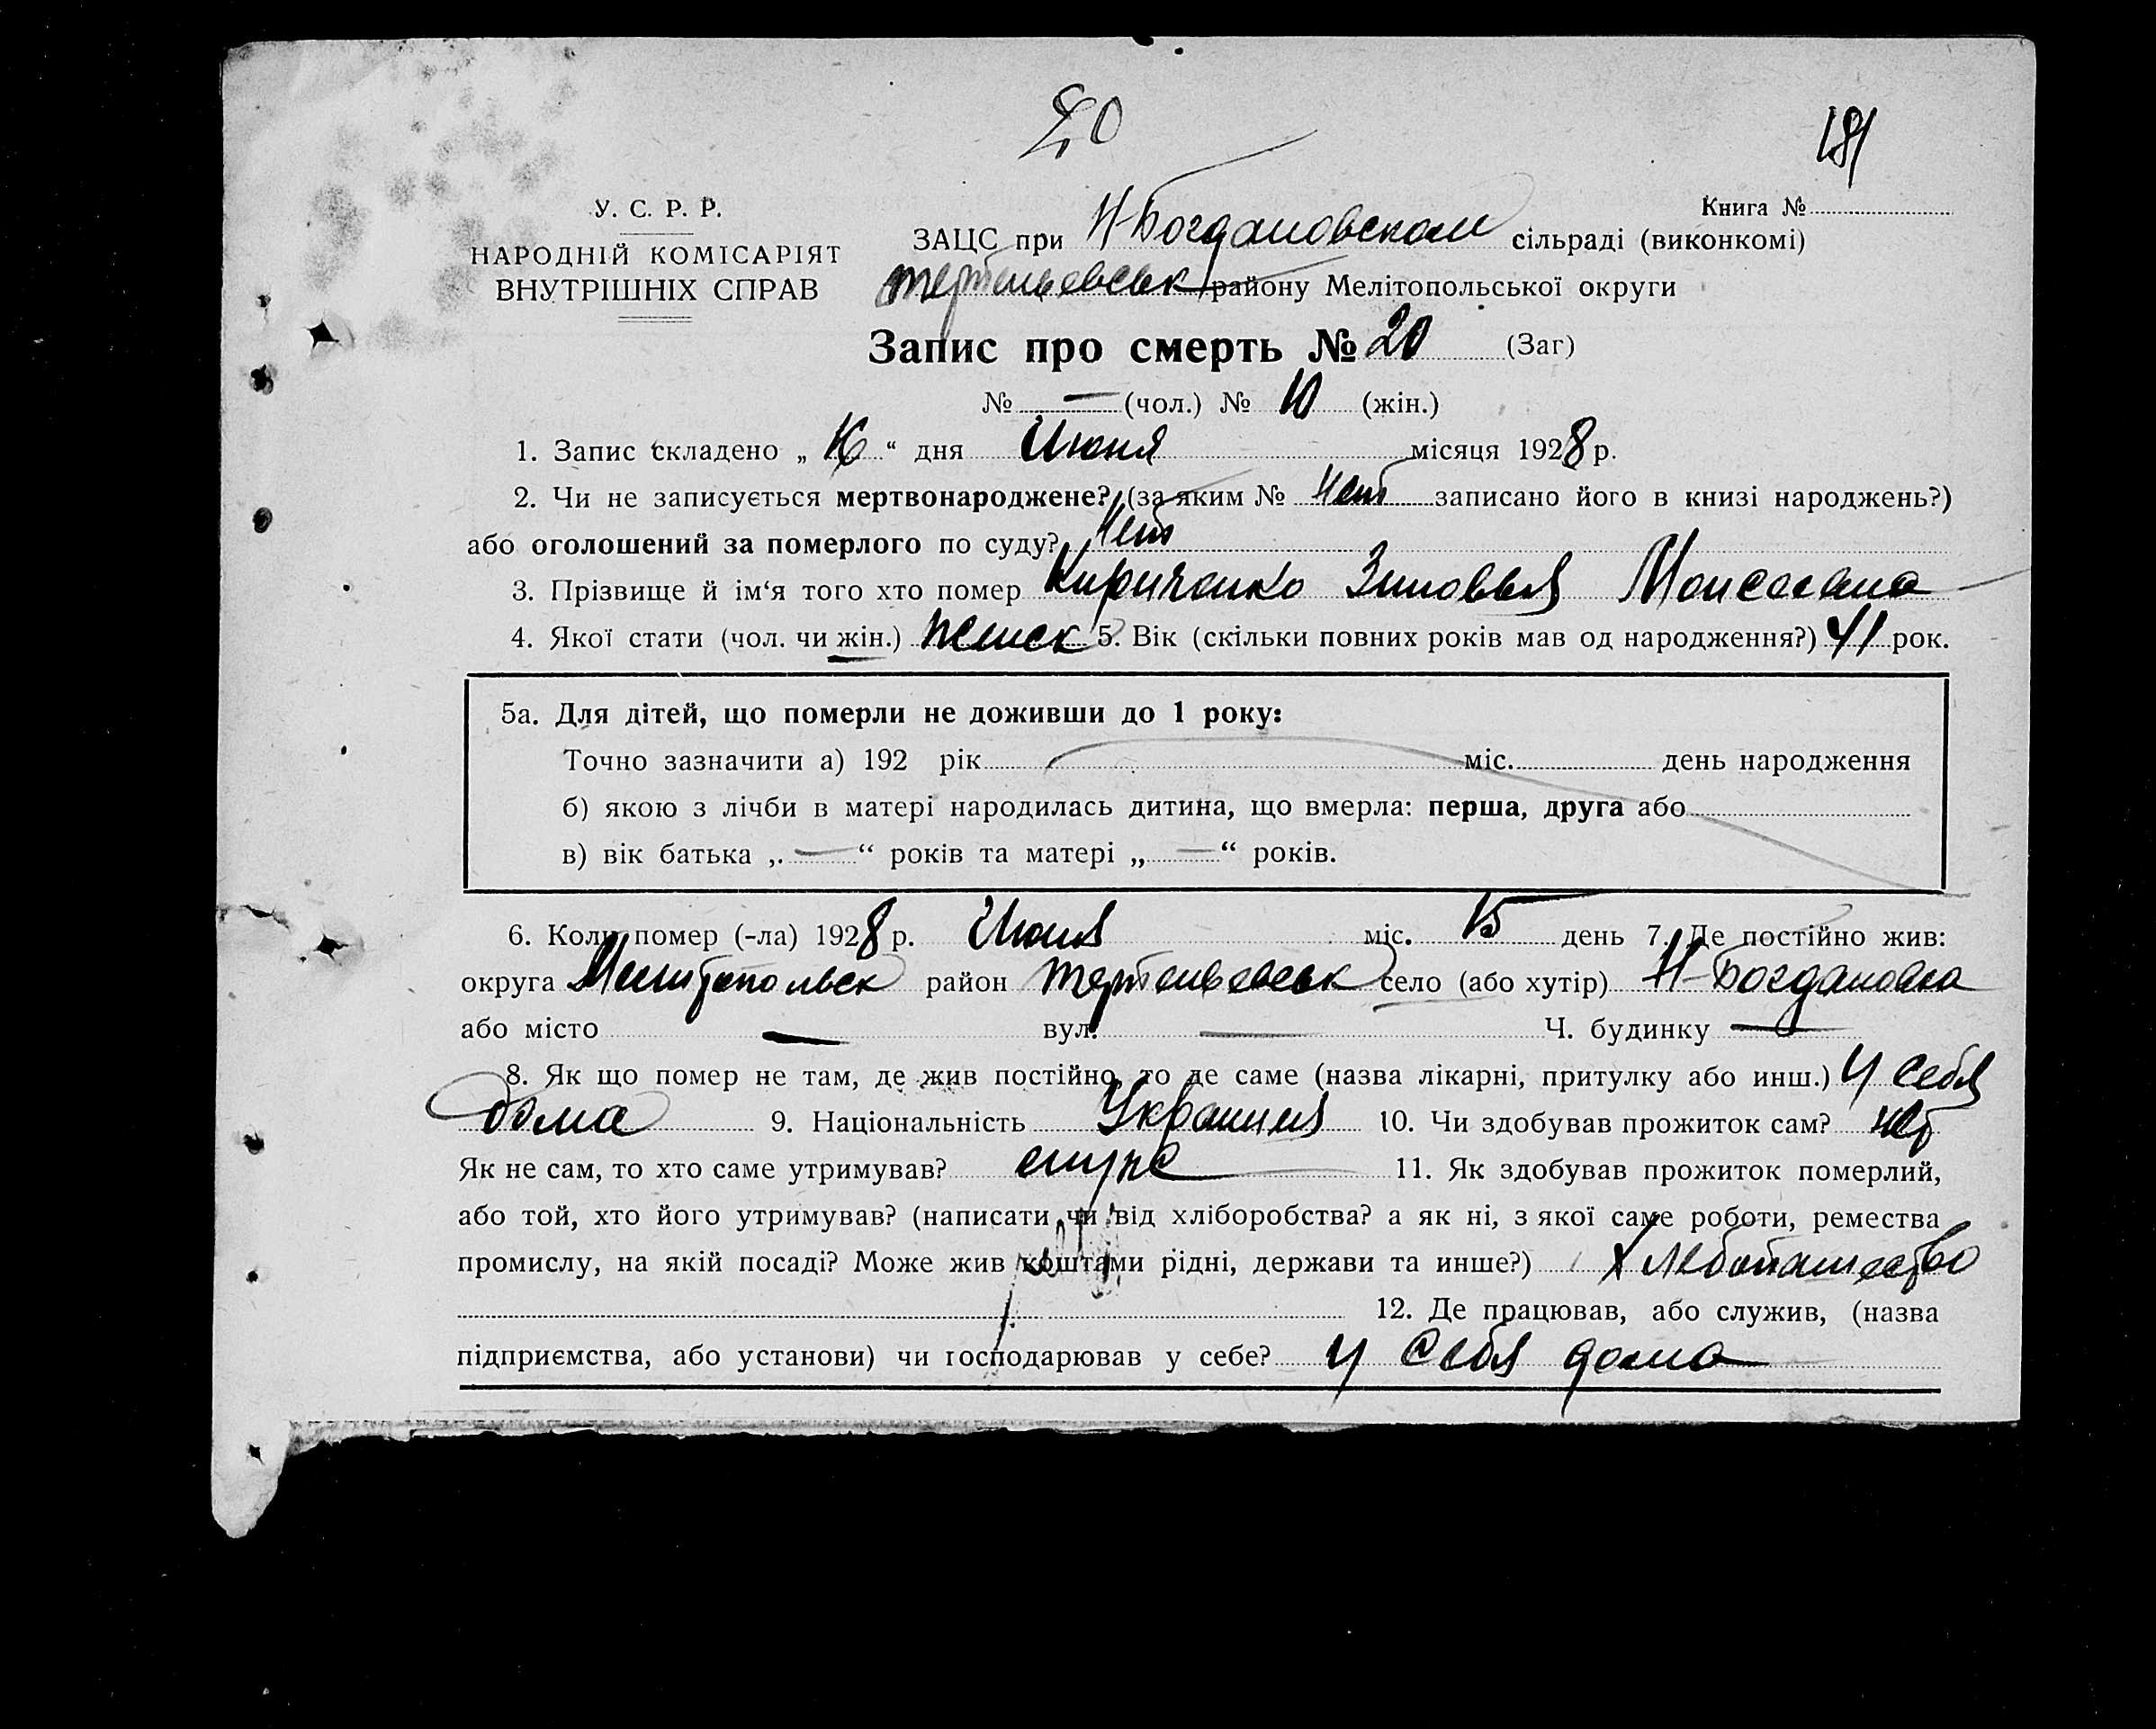 20
181
У. С. Р. Р.
НАРОДНІЙ КОМІСАРІЯТ
ВНУТРІШНІХ СПРАВ
Книга №
ЗАЦС при Н-Богдановском сільраді (виконкомі)
району Мелітопольської округи
Запис про смерть № 20 (Заг)
№ — (чол.) № 10 (жін.)
1. Запис складено „ 16 “ дня Июня місяця 1928 р.
2. Чи не записується мертвонароджене? (за яким № Нет записано його в книзі народжень?)
або оголошений за померлого по суду? Нет
3. Прізвище й ім‘я того хто помер Кириченко Зиновья Моисеевна
4. Якої стати (чол. чи жін.) женск 5. Вік (скільки повних років мав од народження?) 41 рок.
5а. Для дітей, що померли не доживши до 1 року:
Точно зазначити а) 192 рік міс. день народження
б) якою з лічби в матері народилась дитина, що вмерла: перша, друга або
в) вік батька „ — “ років та матері „ — “ років.
6. Коли помер (-ла) 1928 р. Июня міс. 15 день 7. Де постійно жив:
округа Мелитопольск район село (або хутір) Н-Богдановка
або місто — вул. — Ч. будинку —
8. Як що помер не там, де жив постійно, то де саме (назва лікарні, притулку або инш.) У себя
дома 9. Національність 10. Чи здобував прожиток сам? нет
Як не сам, то хто саме утримував? 11. Як здобував прожиток померлий,
або той, хто його утримував? (написати чи від хліборобства? а як ні, з якої саме роботи, ремества
промислу, на якій посаді? Може жив коштами рідні, держави та инше?) Хлебопашество
12. Де працював, або служив, (назва
підприємства, або установи) чи господарював у себе? у себя дома